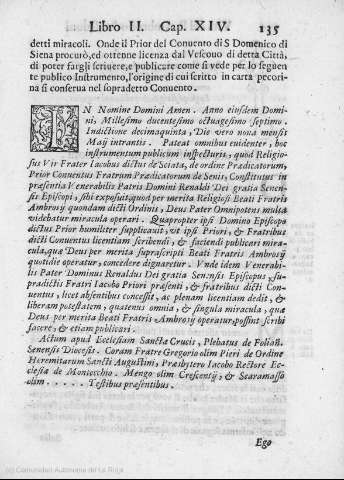 Libro II. Cap. XIV. 135
detti miracoli. Onde il Prior del Conuento di S Domenico di
Siena procurò, ed ottenne licenza dal Vescouo di detta Città,
di poter fargli scriuere, e publicare come si vede per lo seguen
te publico Instrumento, l'origine di cui scritto in carta pecori-
na si conserua nel sopradetto Conuento.
IN Nomine Domini Amen. Anno eiusdem Domi-
ni, Millesimo ducentesimo octuagesimo septimo.
Indictione decimaquinta, Die vero nona mensis
Maij intrantis. Pateat omnibus euidenter, hoc
instrumentum publicum inspecturis, quod Religio-
sus Vir Frater Iacobus dictus de Sciata, de ordine Prædicatorum,
Prior Conuentus Fratrum Prædicatorum de Senis, Constitutus in
præsentia Venerabilis Patris Domini Renaldi Dei gratia Senen-
sis Episcopi, sibi exposuit, quod per merita Religiosi Beati Fratris
Ambrosÿ quondam dicti Ordinis, Deus Pater Omnipotens multa
videbatur miracula operari. Quapropter ipsi Domino Episcopo
dictus Prior humiliter supplicauit, vt ipsi Priori, & Fratribus
dicti Conuentus licentiam scribendi, & faciendi publicari mira-
cula, quæ Deus per merita suprascripti Beati Fratris Ambrosÿ
quotidie operatur, concedere dignaretur. Vnde idem Venerabi-
lis Pater Dominus Renaldus Dei gratia Senensis Episcopus, su-
pradictis Fratri Iacobo Priori præsenti, & fratribus dicti Con-
uentus, licet absentibus concessit, ac plenam licentiam dedit, &
liberam potestatem, quatenus omnia, & singula miracula, quæ
Deus per merita Beati Fratris Ambrosÿ operatur, possint scribi
facere, & etiam publicari.
Actum apud Ecclesiam Sanctæ Crucis, Plebatus de Folian.
Senensis Diocesis. Coram Fratre Gregorio olim Pieri de Ordine
Heremitarum Sancti Augustini, Præsbytero Iacobo Rectore Ec-
clesiæ de Montecchio. Mengo olim Crescentÿ, & Scaramasso
olim . . . . . Testibus præsentibus.
Ego
(c) Comunidad Autónoma de La Rioja